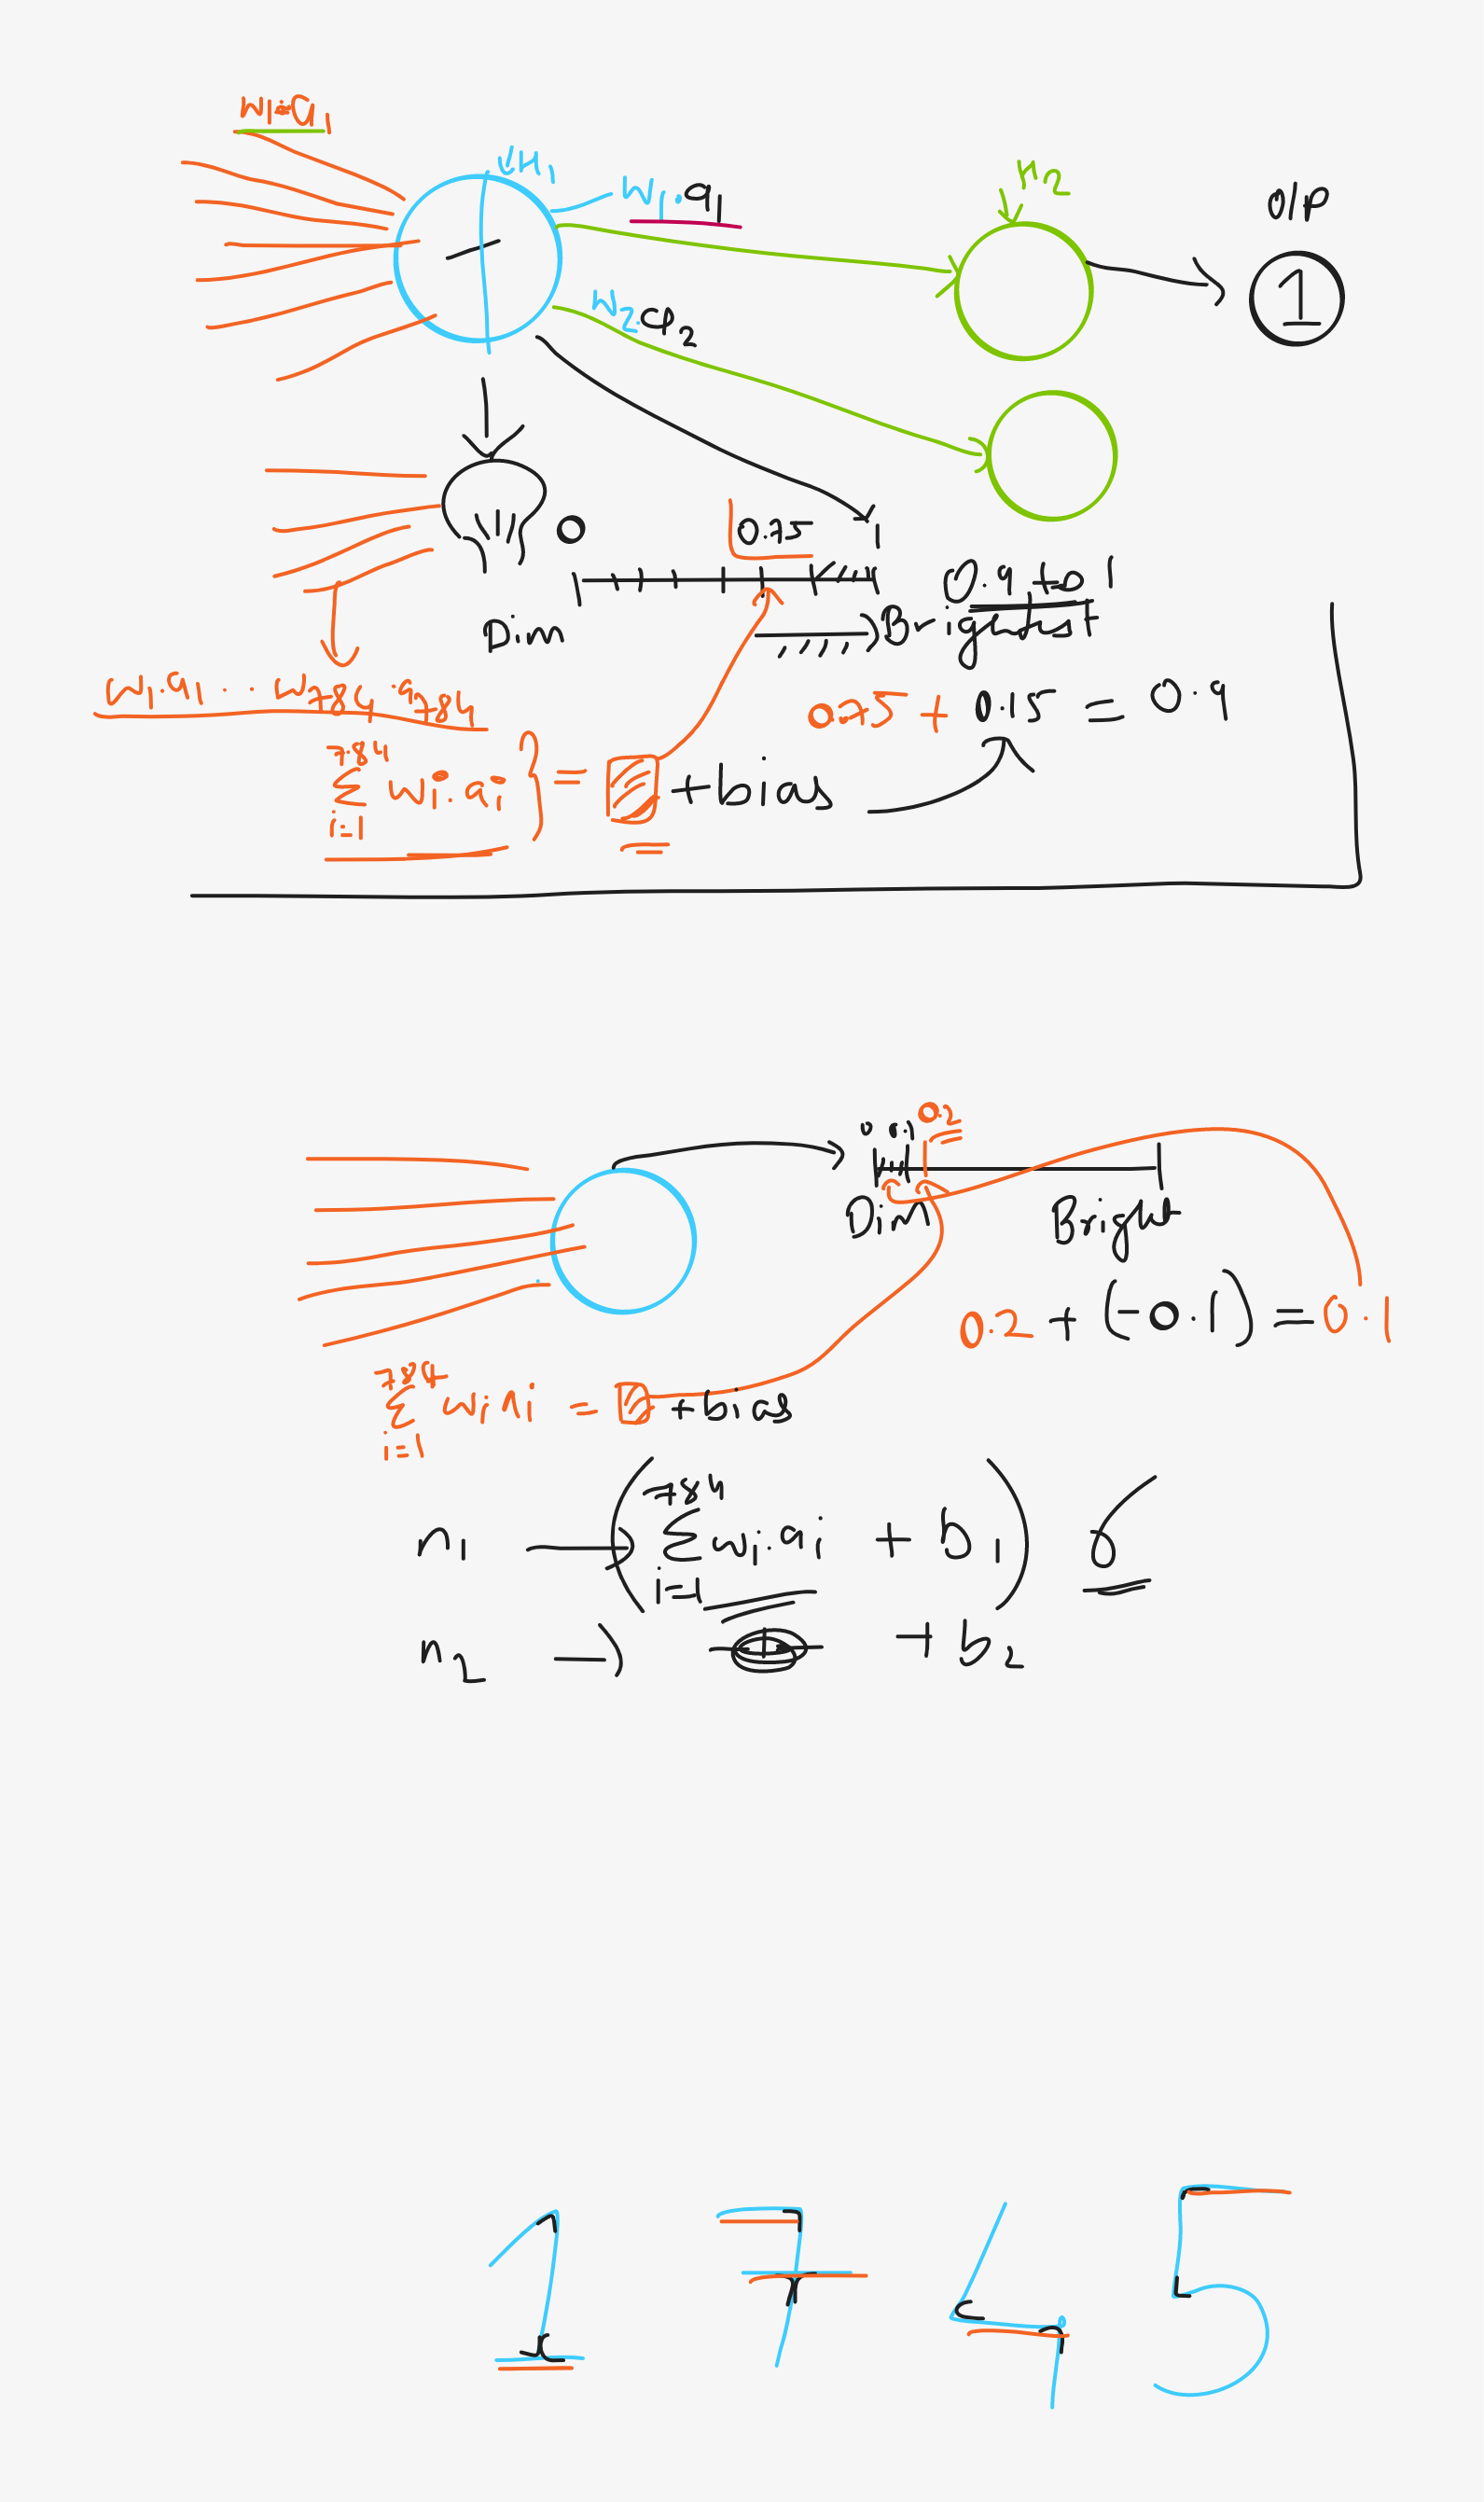 w1 a1
n1
w1.a1
n2
o/p
1
w2.a2
0
0.75
1
Dim
Bright
0.9 to 1
w1.a1 . . . w784.a784
0.75 + 0.15 = 0.9
784
∑ wi.ai
i=1
= + bias
0 0.1 0.2
Dim Bright
0.2 + (-0.1) = 0.1
784
∑ wi ai = + bias
i=1
784
n1 → ( ∑ wi.ai + b1 ) σ
i=1
n2 → + b2
1 7 4 5